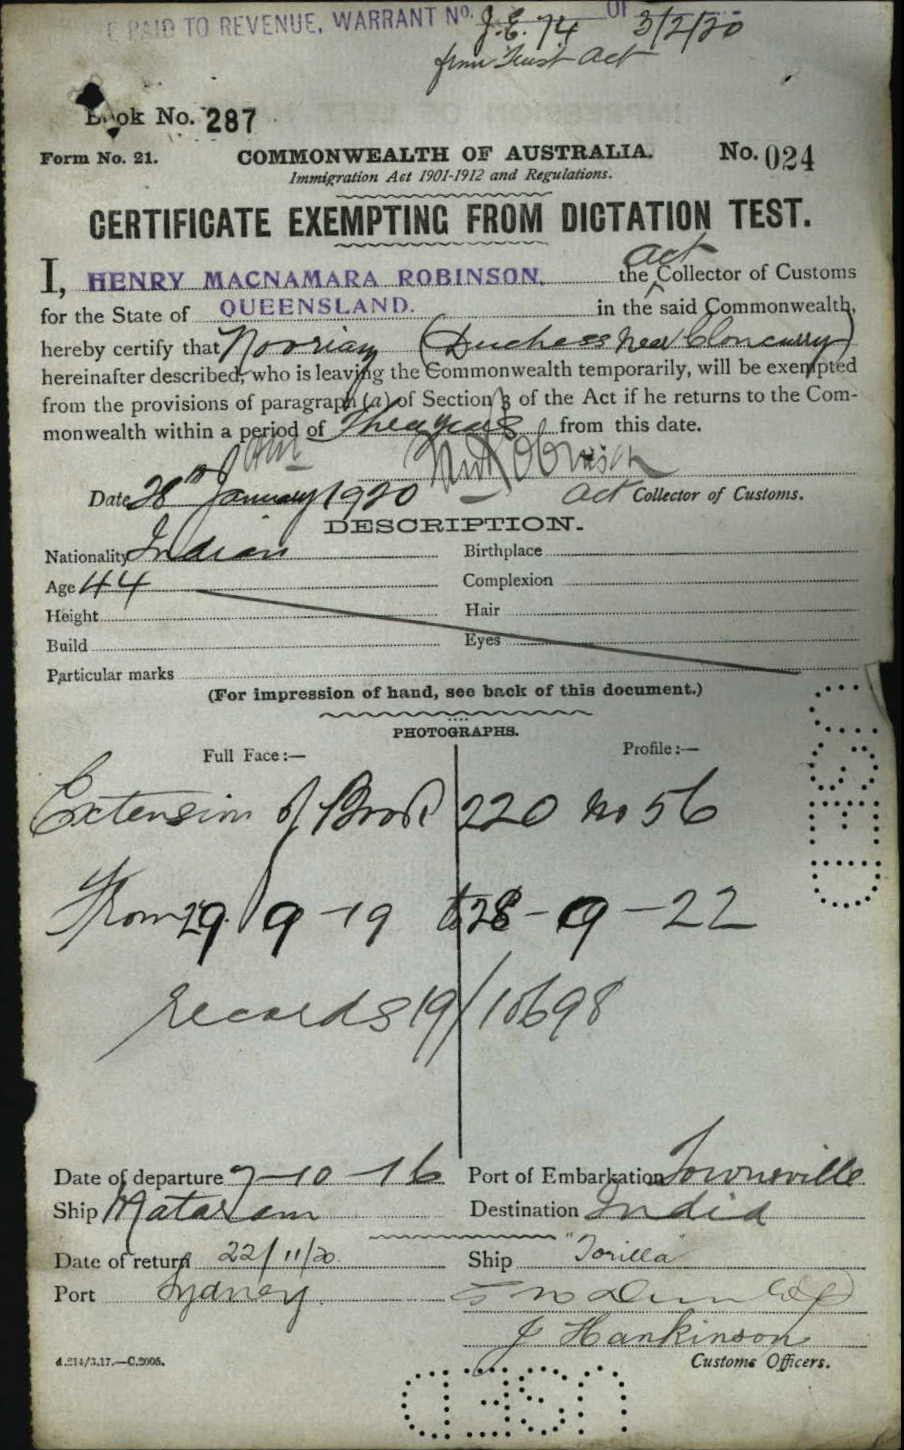 PAID TO REVENUE, WARRANT No. J.E. 74 OF 3/2/20
from Trust Act
Book No. 287
Form No. 21. COMMONWEALTH OF AUSTRALIA. No. 024
Immigration Act 1901-1912 and Regulations.
CERTIFICATE EXEMPTING FROM DICTATION TEST.
act
I, HENRY MACNAMARA ROBINSON, the Collector of Customs
for the State of QUEENSLAND. in the said Commonwealth,
hereby certify that Noorian (Duchess near Cloncurry)
hereinafter described, who is leaving the Commonwealth temporarily, will be exempted
from the provisions of paragraph (a) of Section 3 of the Act if he returns to the Com-
monwealth within a period of Three years from this date.
HMRobinson
Date 28th January 1920 act Collector of Customs.
DESCRIPTION.
Nationality Indian Birthplace
Age 44 Complexion
Height Hair
Build Eyes
Particular marks
(For impression of hand, see back of this document.)
PHOTOGRAPHS.
Full Face:— Profile:—
Extension of Book 220 no 56
From 29-9-19 to 28-9-22
records 19/10698
Date of departure 7-10-16 Port of Embarkation Townsville
Ship Mataram Destination India
Date of return 22/11/20. Ship "Torilla"
Port Sydney
J Hankinson
d.214/3.17.—C.2005. Customs Officers.
USED